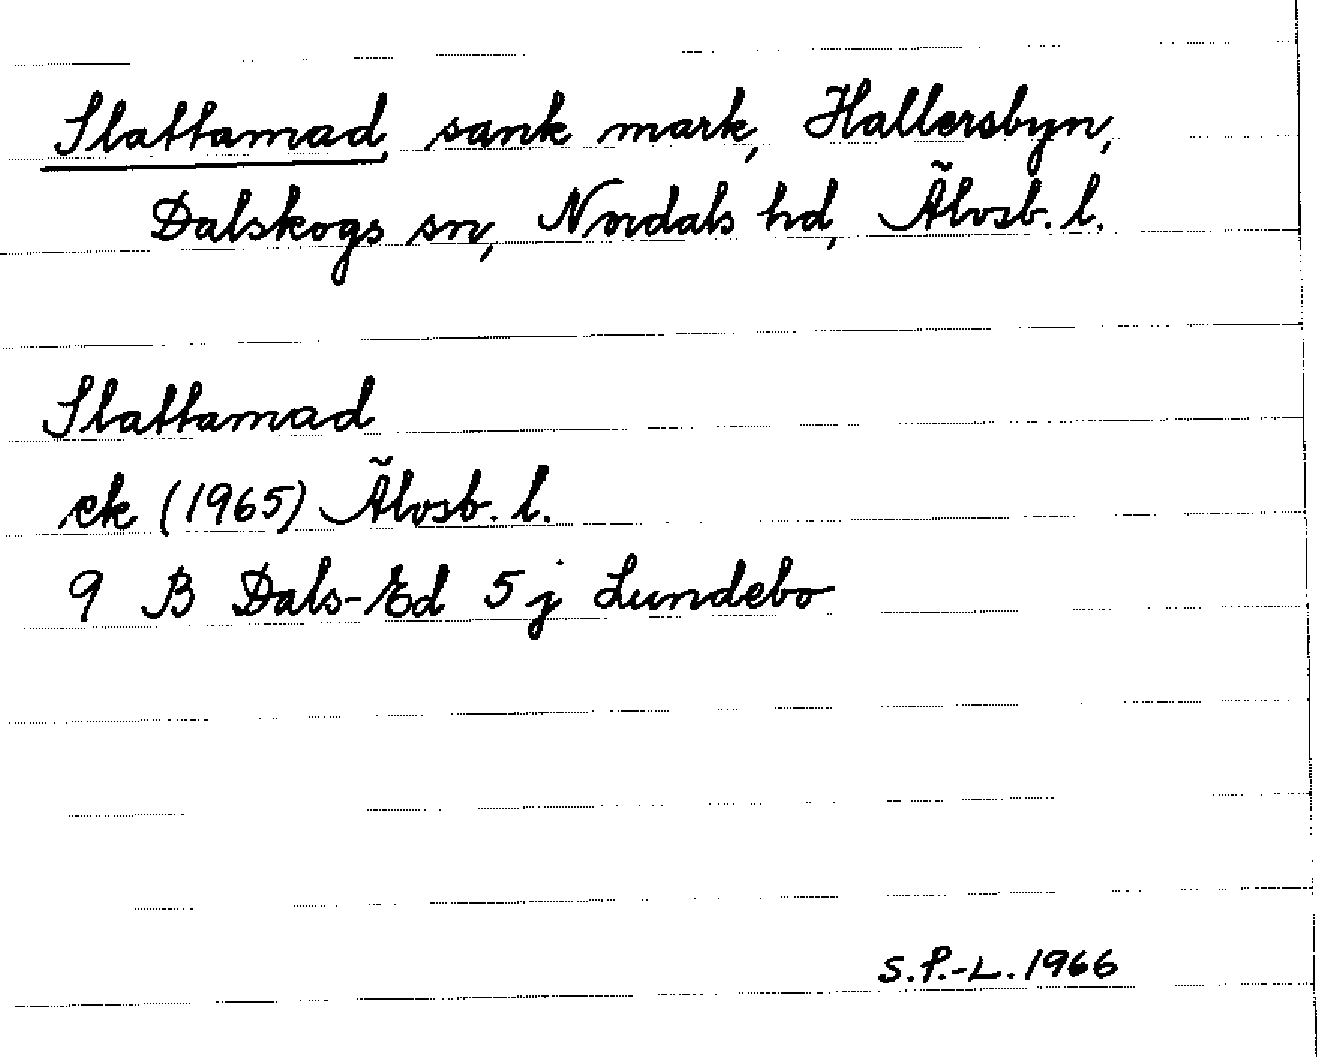 Slattamad, sank mark, Hallersbyn,
Dalskogs sn, Nordals hd, Älvsb. l.
Slattamad
ek (1965) Älvsb. l.
9 B Dals-Ed 5 j Lundebo
S.P.-L. 1966